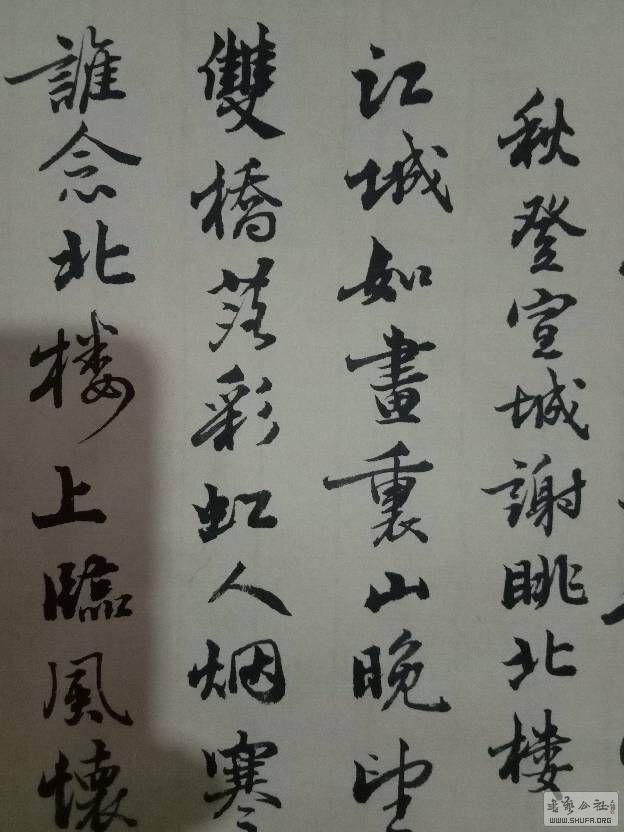 秋登宣城謝眺北楼
江城如畫裏山晚望
雙橋落彩虹人烟寒
誰念北楼上臨風懷
WWW.SHUFA.ORG